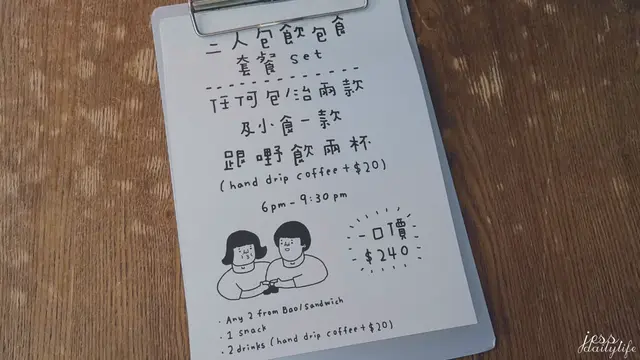 二人包飲包食
套餐 set
任何包/治兩款
及小食一款
跟嘢飲兩杯
(hand drip coffee + $20)
6pm - 9:30 pm
一口價
$240
· Any 2 from Bao/Sandwich
· 1 snack
· 2 drinks (hand drip coffee + $20)
jess
dailylife